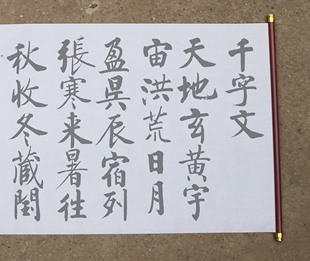 千字文
天地玄黃宇
宙洪荒日月
盈昃辰宿列
張寒来暑往
秋收冬藏閏